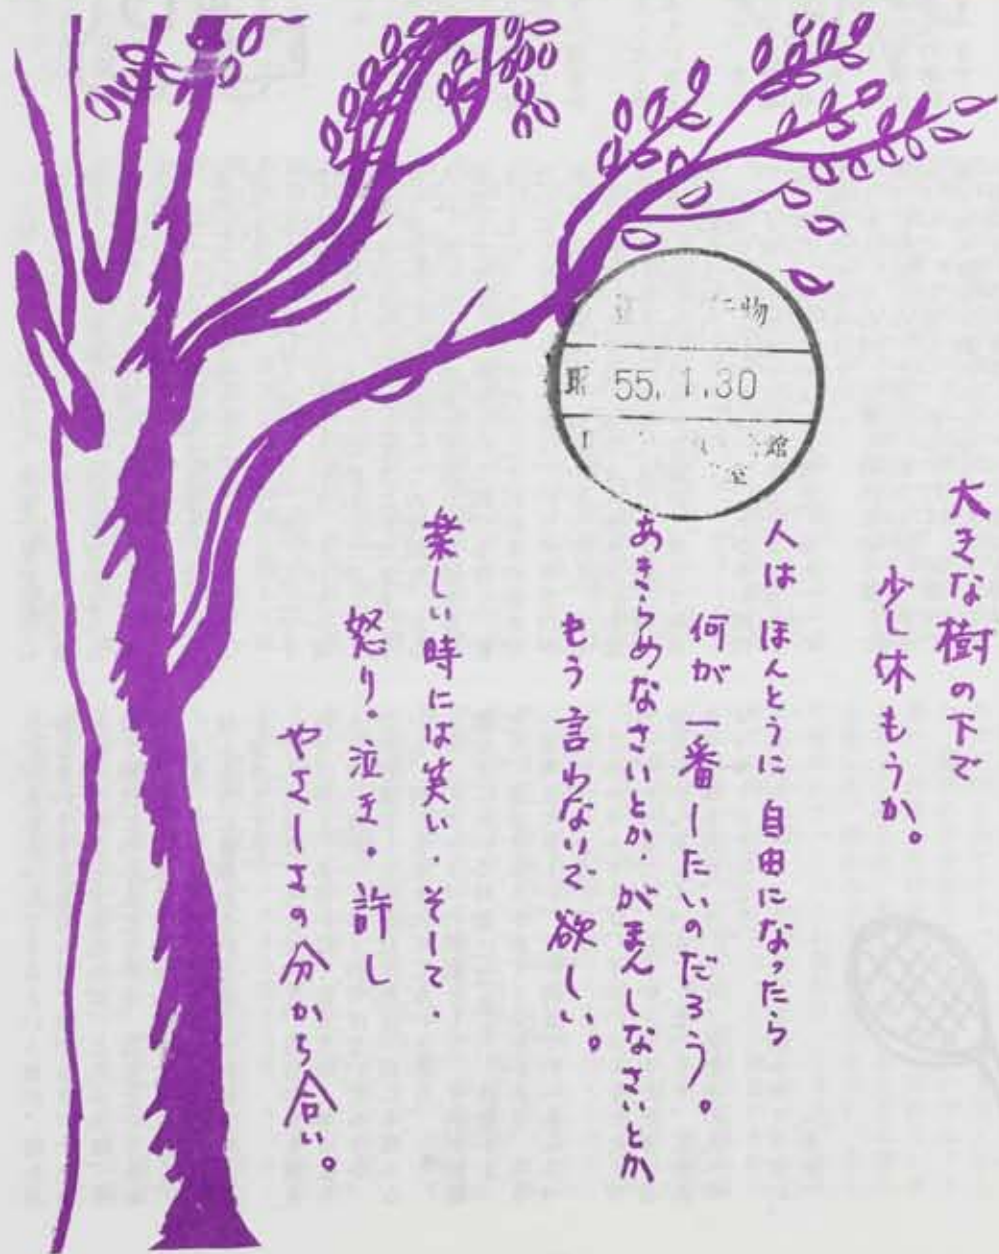 大きな樹の下で
少し休もうか。
人は ほんとうに 自由になったら
何が 一番したいのだろう。
あきらめなさいとか、がまんしなさいとか
もう 言わないで 欲しい。
楽しい時には笑い、そして、
怒り、泣き、許し
やさしさの分かち合い。
物
昭 55. 1. 30
館
室